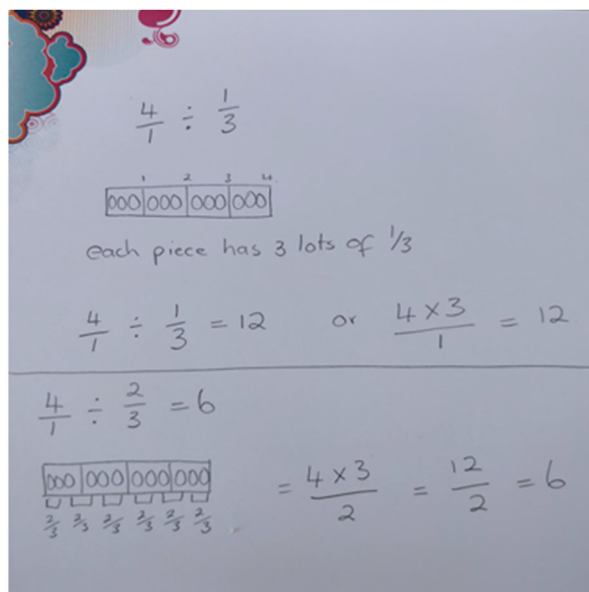 4/1 ÷ 1/3
1 2 3 4
000 000 000 000
each piece has 3 lots of 1/3
4/1 ÷ 1/3 = 12 or 4 × 3/1 = 12
4/1 ÷ 2/3 = 6
000 000 000 000 = 4 × 3/2 = 12/2 = 6
2/3 2/3 2/3 2/3 2/3 2/3